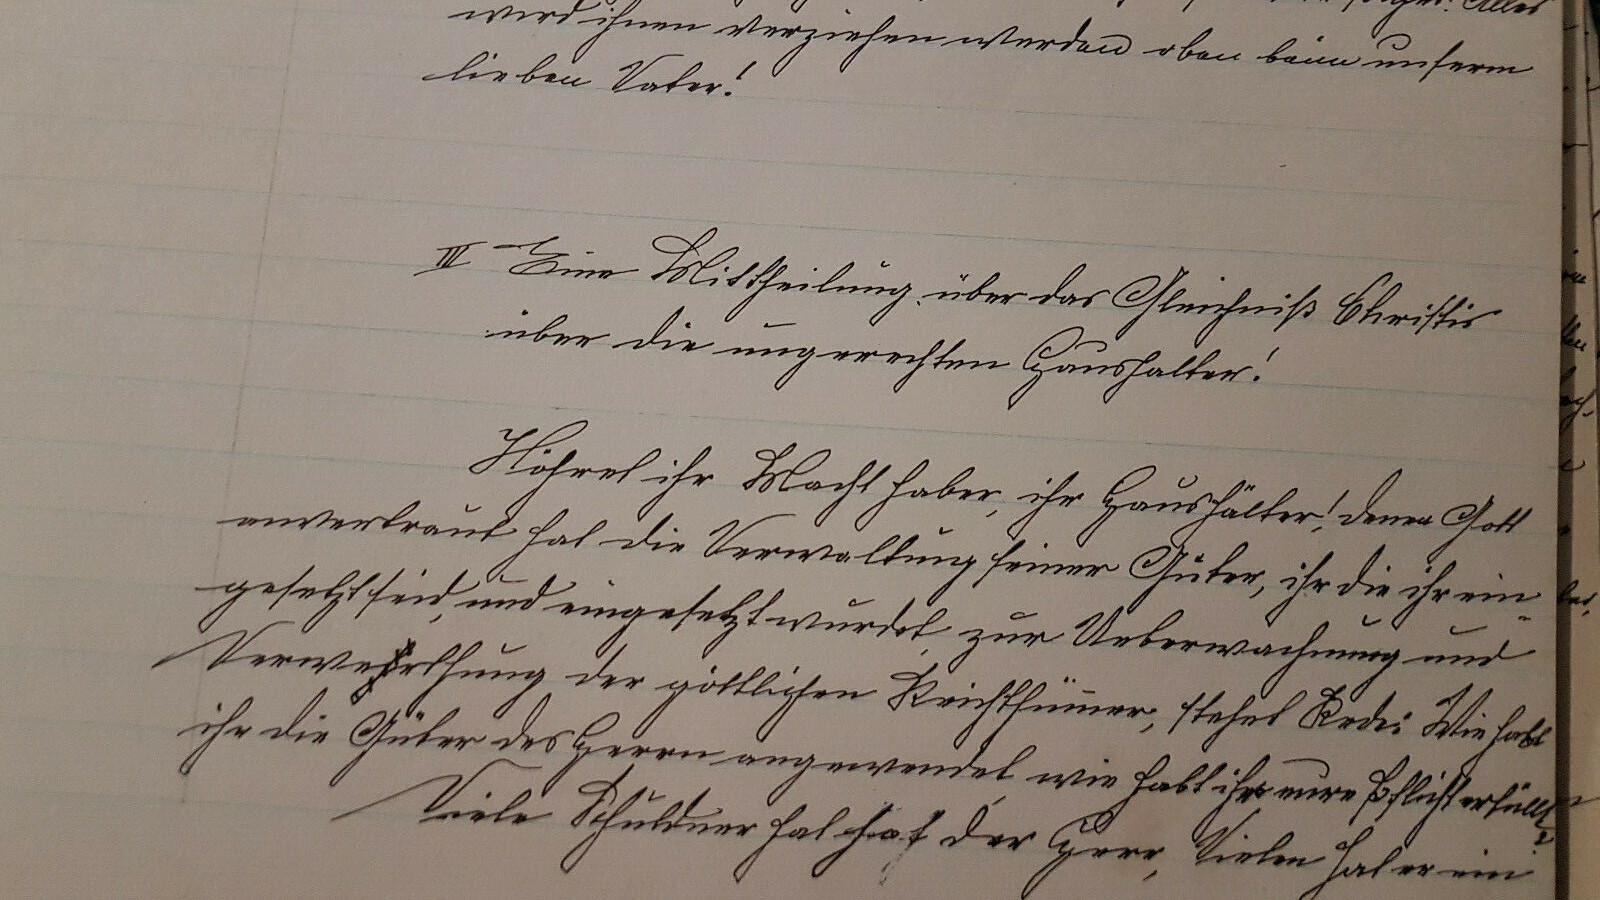 Alles
wird ihnen verziehen werden oben beim unserm
lieben Vater!
III Eine Mittheilung über das Gleichniß Christis
über die ungerechten Haushalter!
Höhret ihr Machthaber, ihr Haushälter! denen Gott
anvertraut hat die Verwaltung seiner Güter, ihr die ihr ein
gesetzt seid, und eingesetzt wurdet, zur Ueberwachung und
Verwerthung der göttlichen Reichthümmer, stehet Rede: Wie habt
ihr die Güter des Herrn angewendet, wie habt ihr eure Pflicht erfüllt?
Viele Schuldner hat hat der Herr, Vielen hat er ein